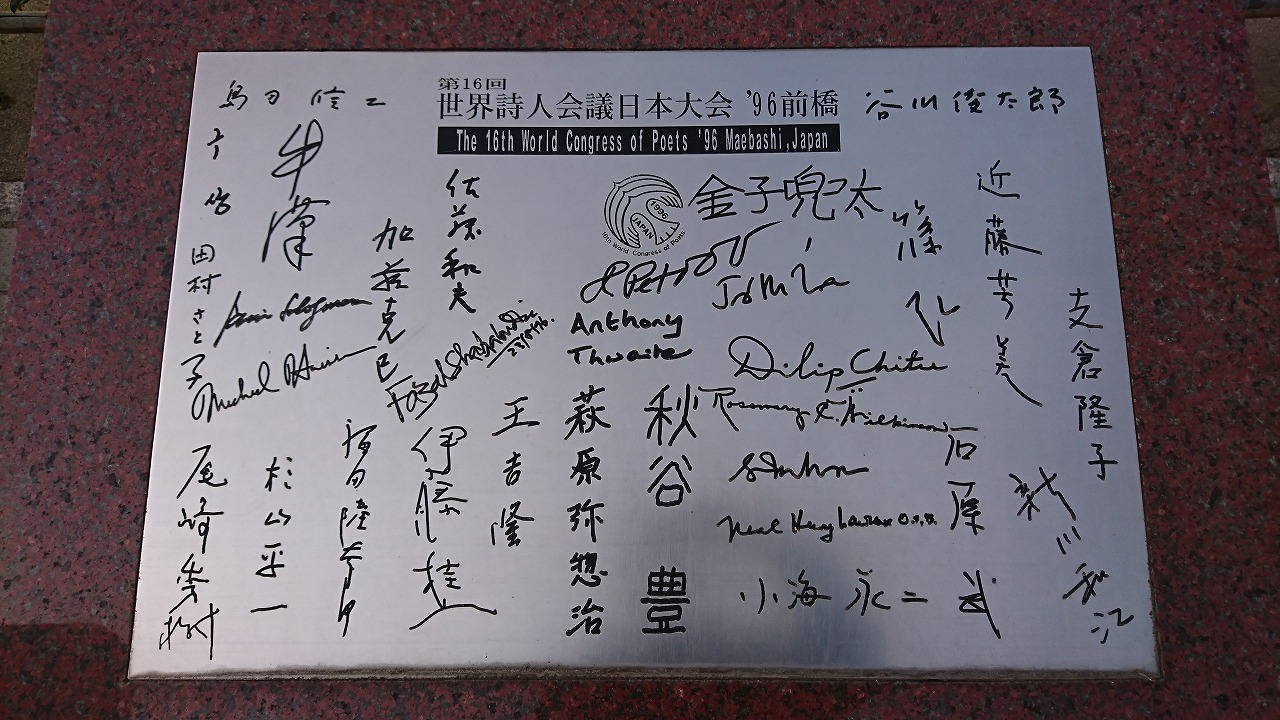 第16回
世界詩人会議日本大会 '96前橋
The 16th World Congress of Poets '96 Maebashi,Japan
島田修二
谷川俊太郎
1996
JAPAN
16th World Congress of Poets
金子兜太
近藤芳美
佐藤和夫
加藤克巳
牛漢
田村さと子
支倉隆子
篠弘
Anthony
Thwaite
Dilip Chitre
Rosemary C. Wilkinson
新川和江
石原武
小海永二
秋谷豊
萩原弥惣治
王吉隆
伊藤桂一
杉山平一
尾崎秀樹